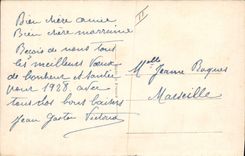 Bien chère amie
Bien chère marraine
Reçois de nous tous
les meilleurs Vœux
de bonheur et santée
pour 1928 avec
tous nos bons baisers
Jean Gaston Victoria
II
Melle Jeanne Roques
Marseille